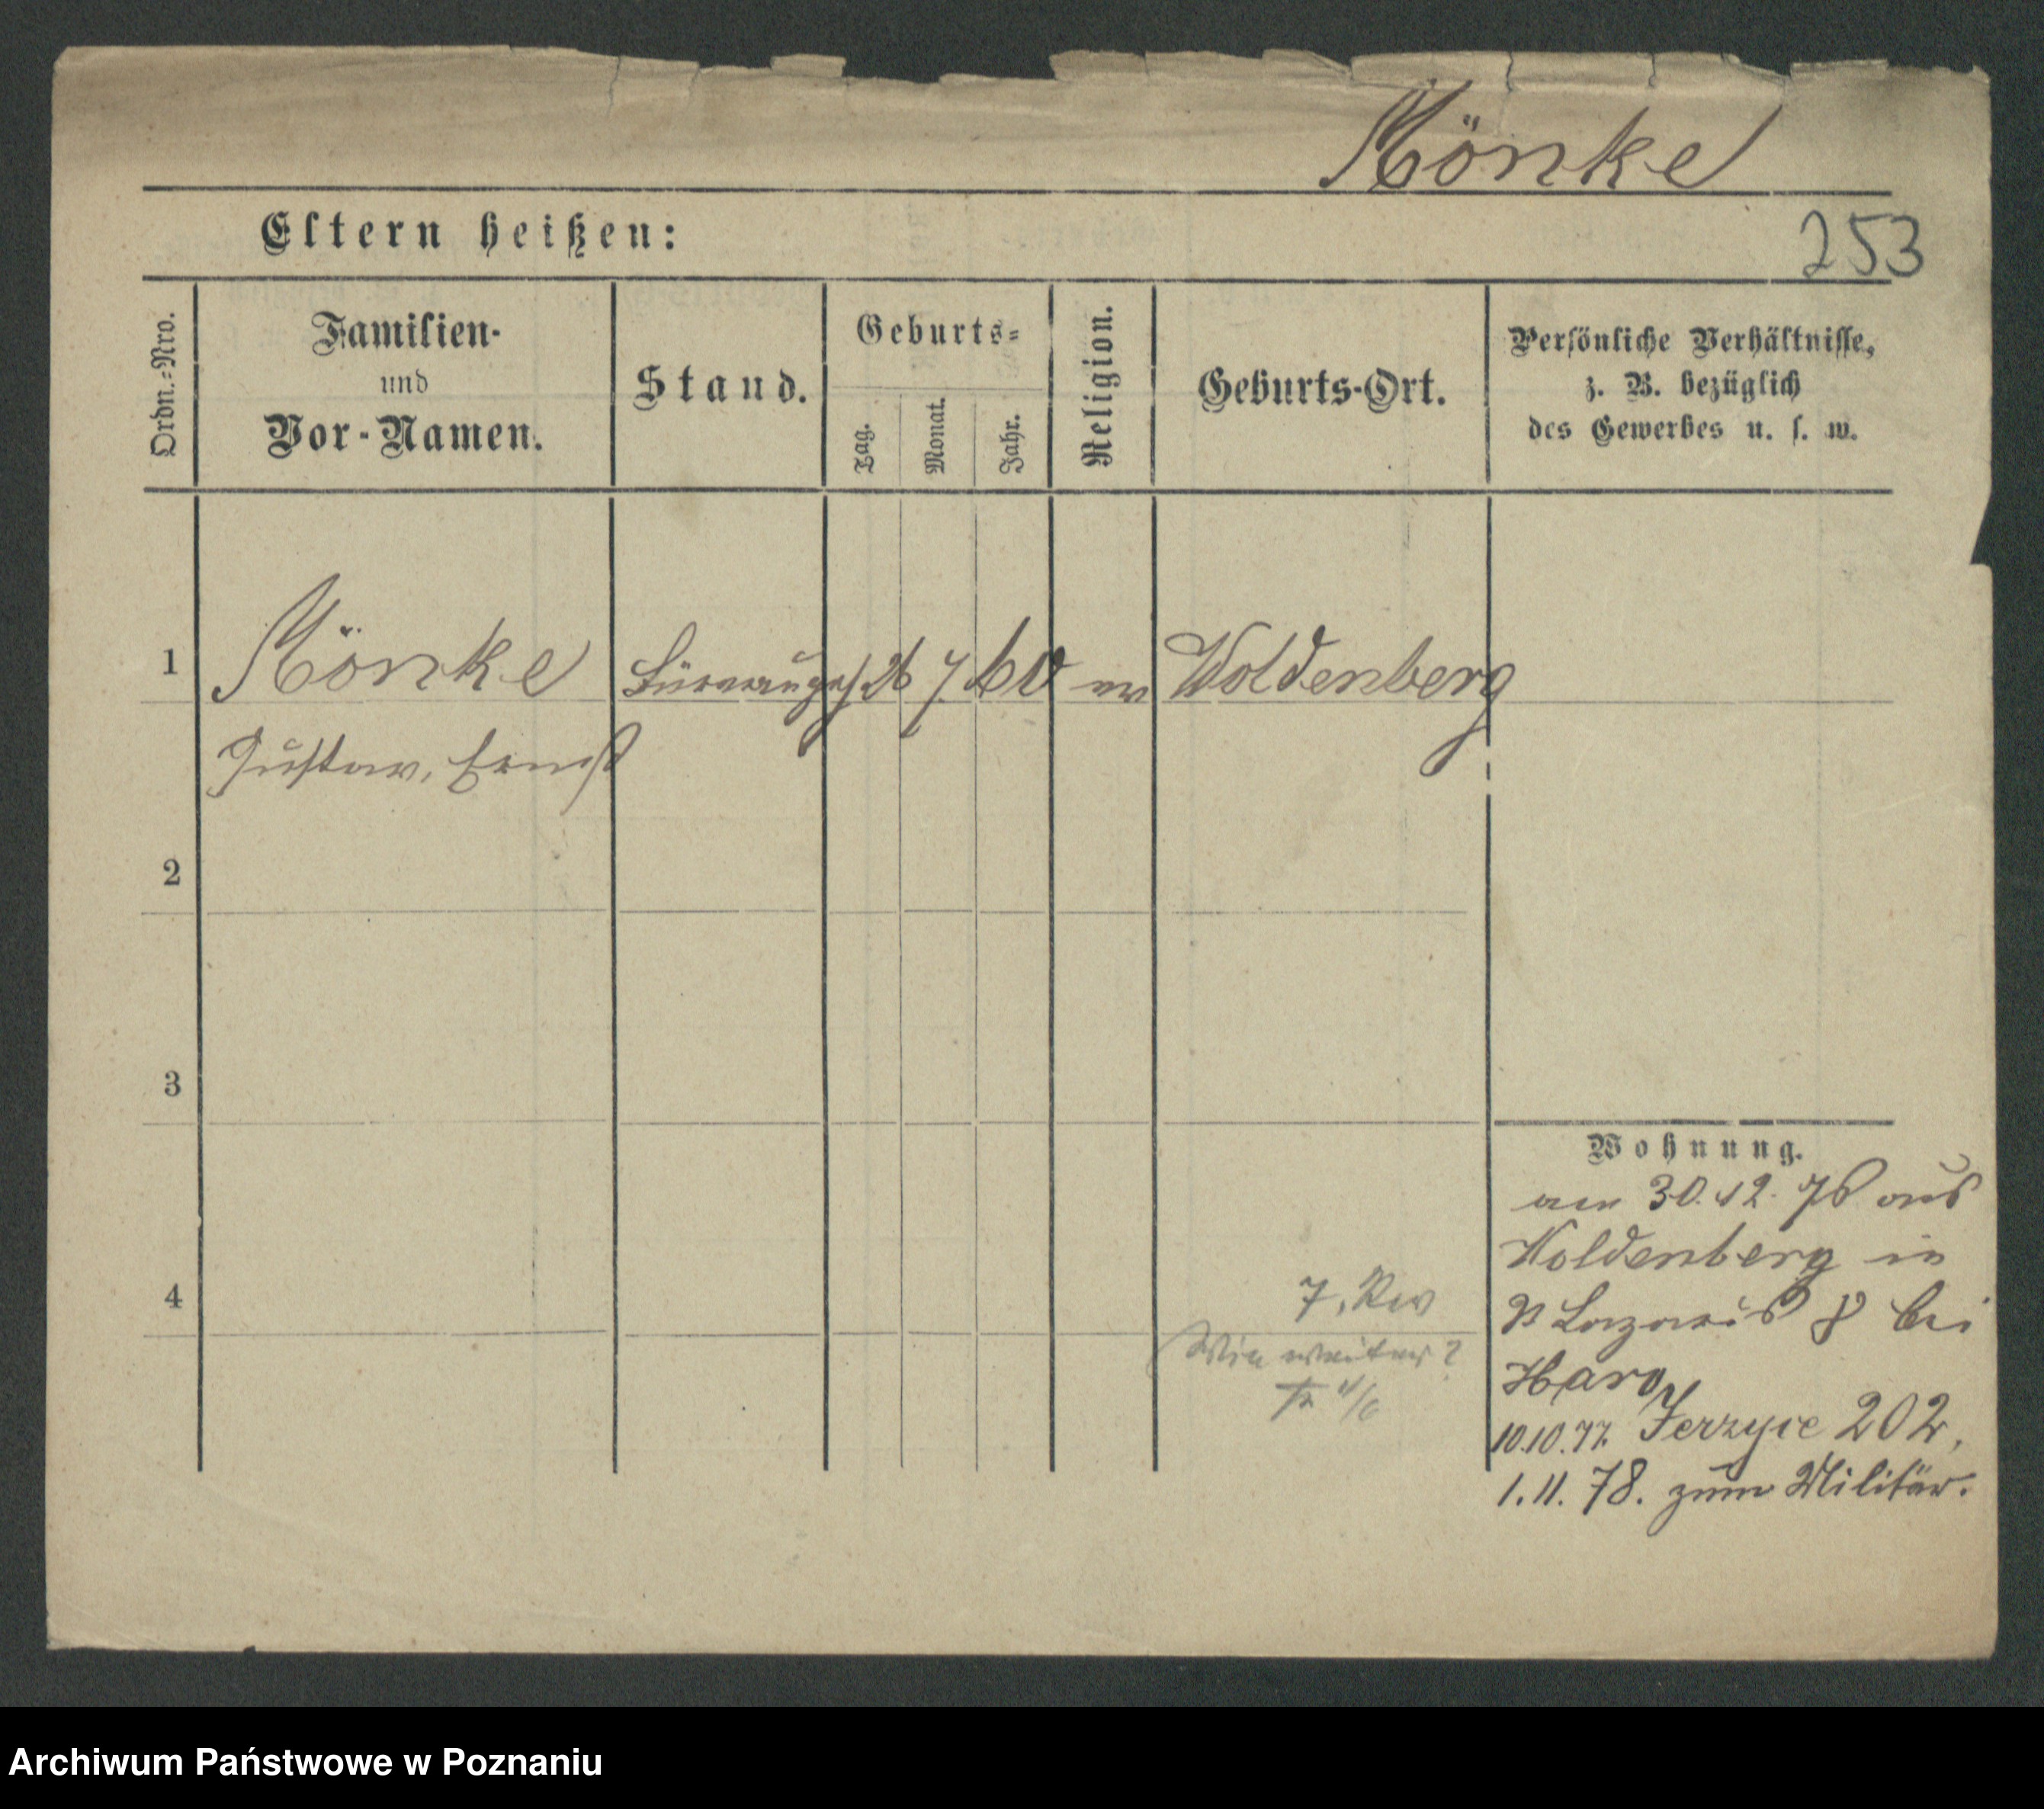 Mönke
Eltern heißen:
253
Ordn.-Nro.
Familien-
und
Vor-Namen.
Stand.
Geburts-
Tag.
Monat.
Jahr.
Religion.
Geburts-Ort.
Persönliche Verhältnisse,
z. B. bezüglich
des Gewerbes u. s. w.
1 Mönke 26 7. 60 ev Woldenberg
Gustav, Ernst
2
3
Wohnung.
am 30.12. 76 aus
Woldenberg in
St Lazarus 8 bei
4
7. Rev
Wie weiter?
Harg
10.10.77. Jerzyce 202,
1.11. 78. zum Militär.
Archiwum Państwowe w Poznaniu